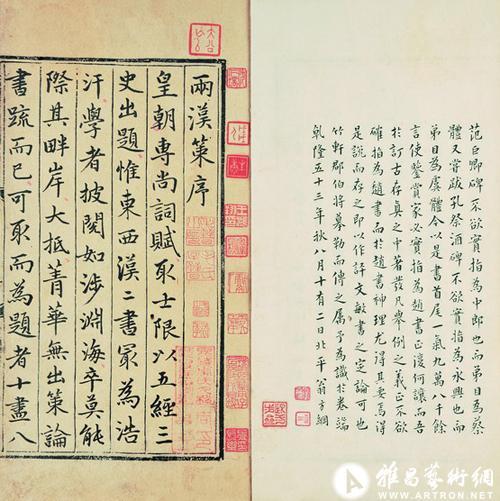 范巨卿碑不欲實指為中郎也而弟目為蔡
體又嘗跋孔祭酒碑不欲實指為永興也而
弟目為虞體今以是書首尾一氣九萬八千餘
言使鑒賞家必實指為趙書正復何讓而吾
於訂古存真之中著發凡舉例之義正不欲
確指為趙書而於趙書神理尤得其妥焉得
是說而存之即以作評文敏書之定論可也
竹軒郡伯將摹勒而傳之屬予為識於卷端
乾隆五十三年秋八月十有二日北平翁方綱
兩漢策序
皇朝專尚詞賦取士限以五經三
史出題惟東西漢二書冣為浩
汗學者披閱如涉淵海卒莫能
際其畔岸大抵菁華無出策論
書疏而已可取而為題者十盡八
雅昌藝術網
WWW.ARTRON.NET